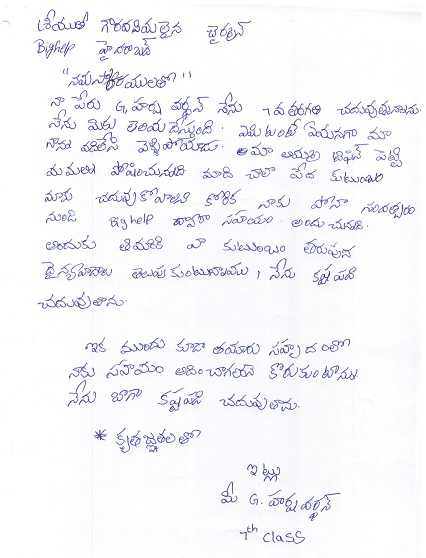 శ్రీయుత గౌరవనీయులైన చైర్మన్
Bighelp హైదరాబాద్
"నమస్కారములతో"
నా పేరు G, హర్ష వర్ధన్ నేను 7వ తరగతి చదువుతున్నాను.
నేను మీకు తెలియచేస్తుంది. ఎమిటంటే ఏమనగా మా
నాన్న వదిలేసి వెళ్ళిపోయాడు. మా అమ్మ టిఫిన్ పెట్టి
మమలని పోషించుచున్నది మాది చాలా పేద కుటుంబం
మాకు చదువుకోవాలని కోరిక నాకు పోనా సంవత్సరం
నుండి Bighelp ద్వారా సహాయం అందుచున్నది.
అందుకు మా కుటుంబం తరుపున
దైన్యవాదాలు తెలుపుకుంటున్నాము, నేను కష్టపడి
చదువుతాను.
ఇక ముందు కూడా తమరు
నాకు సహాయం అదించాగలరని కోరుకుంటూన్ను
నేను బాగా కష్టపడి చదువుతాను.
* కృతజ్ఞతలతో
ఇట్లు
మీ G. హర్ష వర్ధన్
7th class